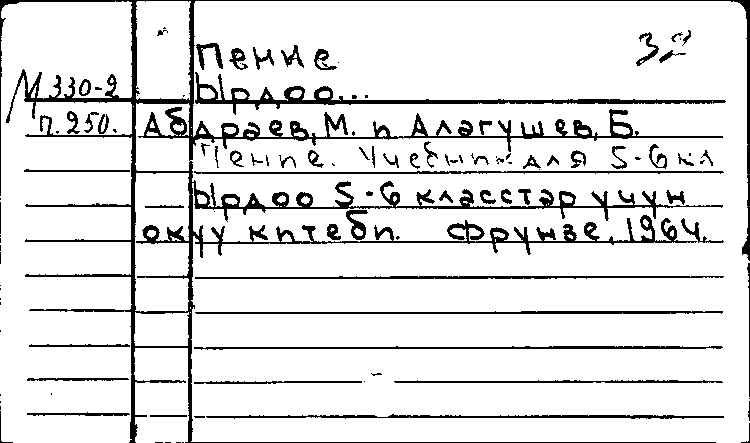 Пение
32
М 330-2
Ырдоо...
п. 250.
Абдраев, М. и Алагушев, Б.
Пение. Учебник для 5-6 кл
Ырдоо 5-6 класстар үчүн
окуу китеби. Фрунзе, 1964.